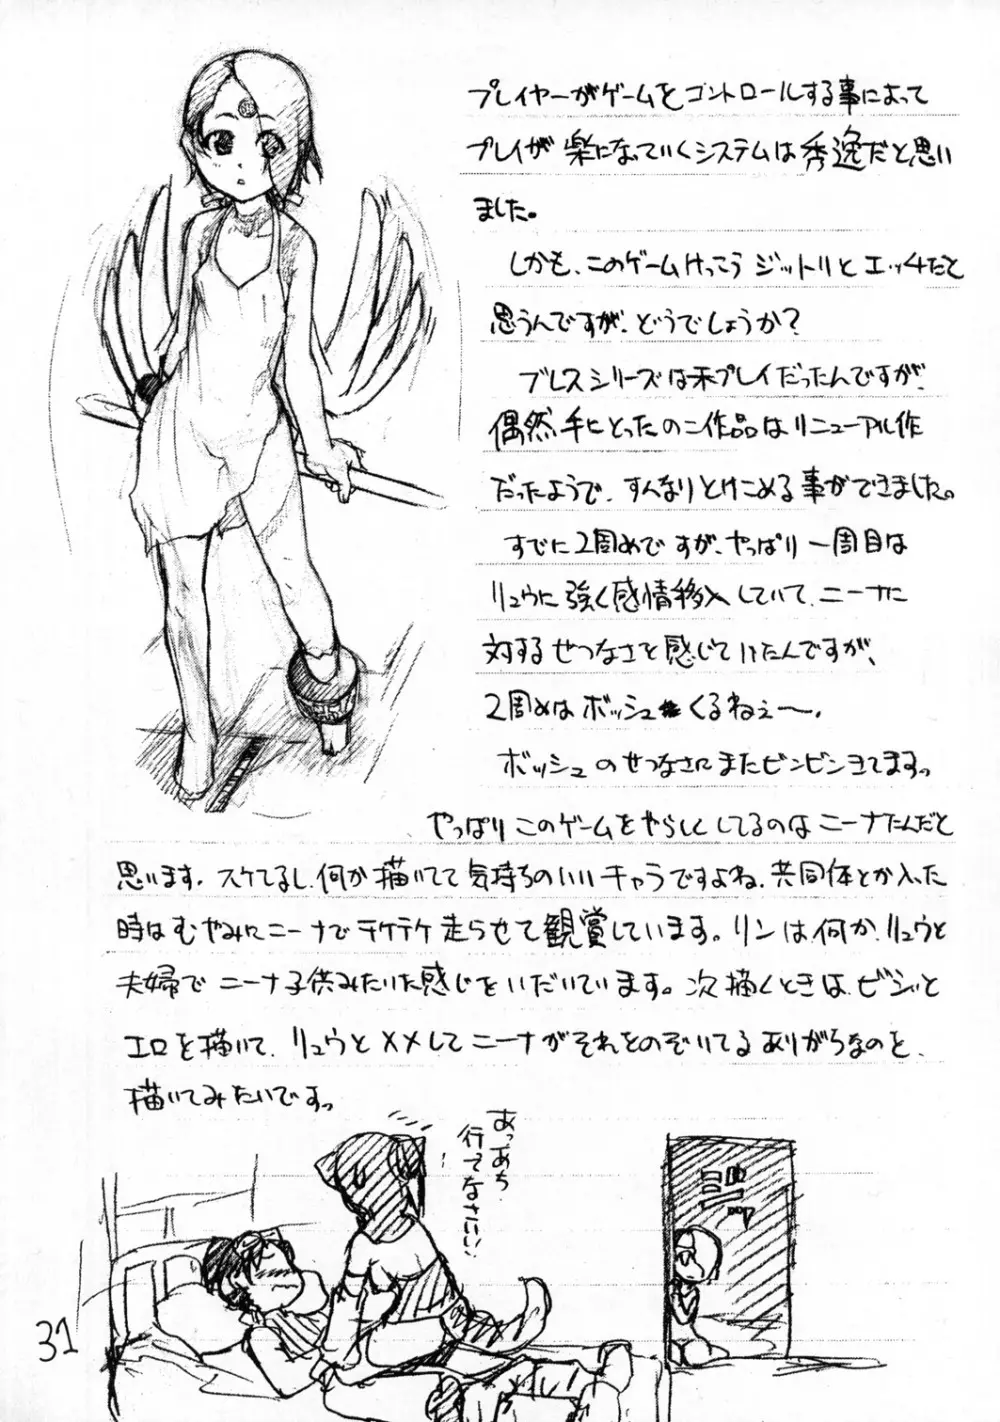 プレイヤーがゲームをコントロールする事によって
プレイが楽になっていくシステムは秀逸だと思い
ました。
しかも、このゲームけっこうジットリとエッチだと
思うんですが、どうでしょうか?
ブレスシリーズは未プレイだったんですが、
偶然手にとったのこ作品はリニューアル作
だったようで、すんなりとけこめる事ができました。
すでに2周めですが、やっぱり一周目は
リュウに強く感情移入していて、ニーナに
対するせつなさを感じていたんですが、
2周めはボッシュくるねぇ〜。
ボッシュのせつなさにまたビンビンきてますっ
やっぱりこのゲームをやらしくしてるのはニーナたんだと
思います。スケてるし、何か描いてて気持ちのいいキャラですよね、共同体とか入った
時はむやみにニーナでテケテケ走らせて観賞しています。リンは、何か、リュウと
夫婦でニーナ子供みたいな感じをいだいています。次描くときは、ビシッと
エロを描いて、リュウと××してニーナがそれをのぞいてるありがちなのを、
描いてみたいですっ
あっあち
行ってなさい!!
ジッ
31